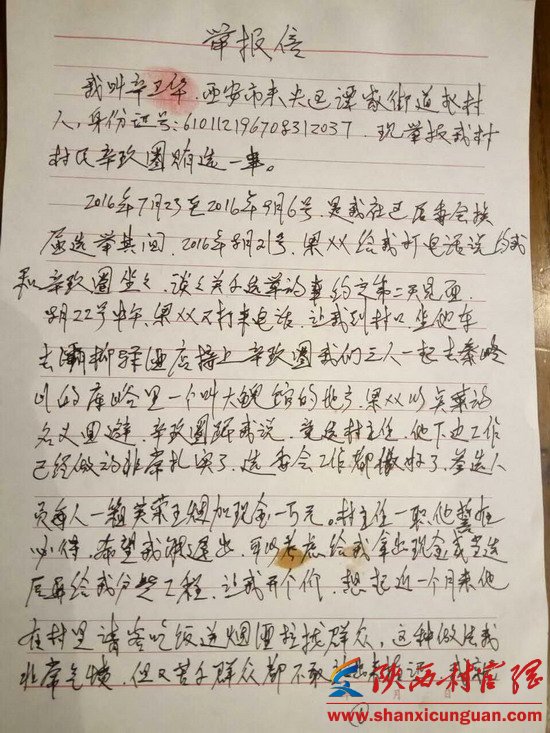 举报信
我叫辛卫华，西安市未央区谭家街道 村
人，身份证号：610112196708312037，现举报我村
村民辛玖圈贿选一事。
2016年7月23至2016年9月6号，是我社区居委会换
届选举其间，2016年8月21号，梁XX给我打电话说约我
和辛玖圈坐坐，谈谈关于选举的事约定第二天见面，
8月22号中午，梁XX又打来电话，让我到村口坐他车
去灞柳驿酒店接上辛玖圈我们三人一起去秦岭
山的库峪里一个叫大鲵馆的地方，梁XX以买菜的
名义回避，辛玖圈跟我说，竞选村主任，他下边工作
已经做的非常扎实了，选委会工作都做好了，参选人
员每人一箱芙蓉王烟加现金一万元。村主任一职他誓在
必得，希望我退出，可以考虑给我拿出现金或当选
后再给我分些工程，让我开个价，想起近一个月来他
在村里请客吃饭送烟酒拉拢群众，这种做法我
非常气愤，但又苦于群众都不敢
①
陕西村官网
www.shanxicunguan.com